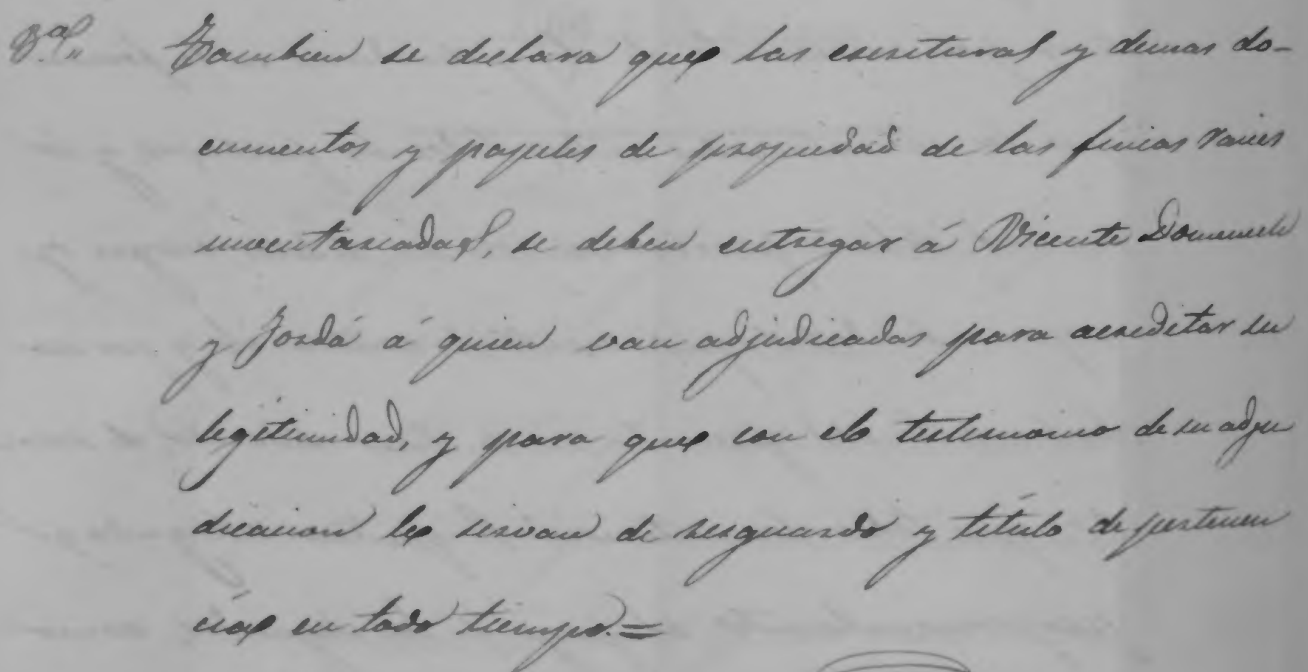 3ª,, Tambien se declara que las escrituras y demas do-
cumentos y papeles de propiedad de las fincas raices
inventariadas, se deben entregar á Vicente Domenech
y Jordá á quien van adjudicadas para acreditar su
legitimidad, y para que con el testimonio de su adju
dicacion le sirvan de resguardo y título de pertenen
cia en todo tiempo.=